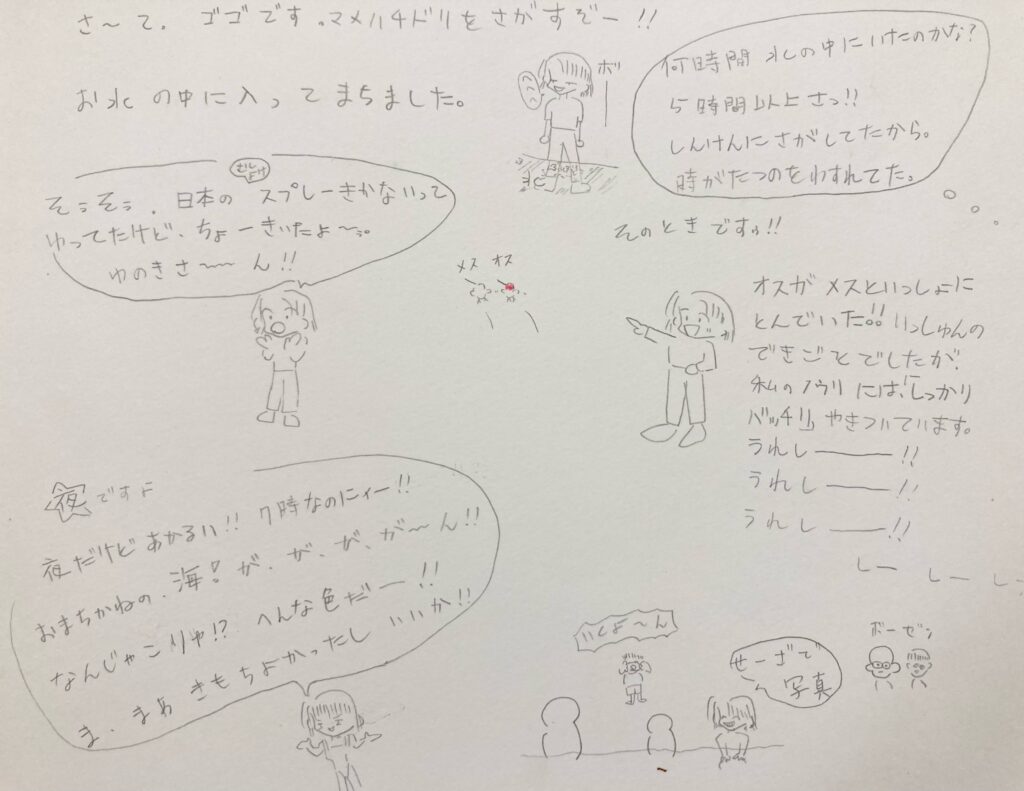 さ〜て。ゴゴです。マメハチドリをさがすぞー!!
お水の中に入ってまちました。
ボー
何時間水の中にいたのかな?
5時間以上さっ!!
しんけんにさがしてたから。
時がたつのをわすれてた。
むしよけ
そうそう。日本のスプレーきかないって
ゆってたけど、ちょーきいたよ〜。
ゆのきさ〜〜ん!!
そのときですっ!!
メス オス
オスがメスといっしょに
とんでいた!! いっしゅんの
できごとでしたが、
私のノウリには、「しっかり
バッチリ」やきついています。
うれしー!!
うれしー!!
うれしー!!
しー しー し
夜ですよ
夜だけどあかるい!! 7時なのにィー!!
おまちかねの、海!が、が、が、が〜ん!!
なんじゃこりゃ!? へんな色だー!!
ま、まあきもちよかったしいいか!!
いくよ〜ん
せーざで
写真
ボーゼン